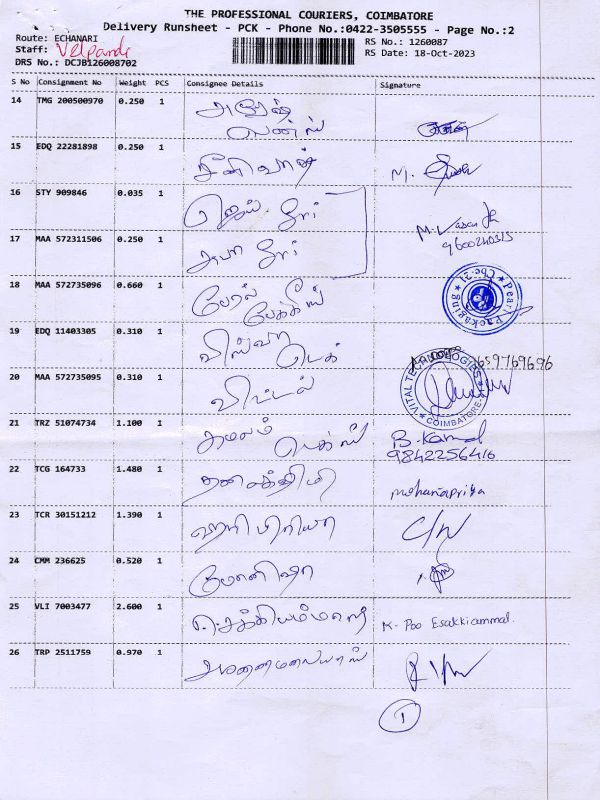 THE PROFESSIONAL COURIERS, COIMBATORE
Delivery Runsheet - PCK - Phone No.:0422-3505555 - Page No.:2
Route: ECHANARI
RS No.: 1260087
Staff: Velpandi
RS Date: 18-Oct-2023
DRS No.: DCJB126008702
S No Consignment No Weight PCS Consignee Details Signature
14 TMG 200500970 0.250 1
15 EDQ 22281898 0.250 1 சீனிவாசன் M.
16 STY 909846 0.035 1 ஜெய் ஸ்ரீ
17 MAA 572311506 0.250 1 சுபா ஸ்ரீ
M. Vasanth
9600240313
18 MAA 572735096 0.660 1 பேரல்
பேக்கிங்
Pearl Packaging Cbe-21
19 EDQ 11403305 0.310 1 விஸ்வா
டெக்
20 MAA 572735095 0.310 1 விட்டல்
VITAL TECHNOLOGIES COIMBATORE
21 TRZ 51074734 1.100 1 கமலம் டெக்ஸ் B. Kamal
9842256416
22 TCG 164733 1.480 1 தனலக்ஷ்மி mohanapriya
23 TCR 30151212 1.390 1 ஹரி பிரியா C/N
24 CMM 236625 0.520 1 மோனிஷா
25 VLI 7003477 2.600 1 இசக்கியம்மாள் K. Poo Esakkiammal.
26 TRP 2511759 0.970 1 அண்ணாமலையார்
1